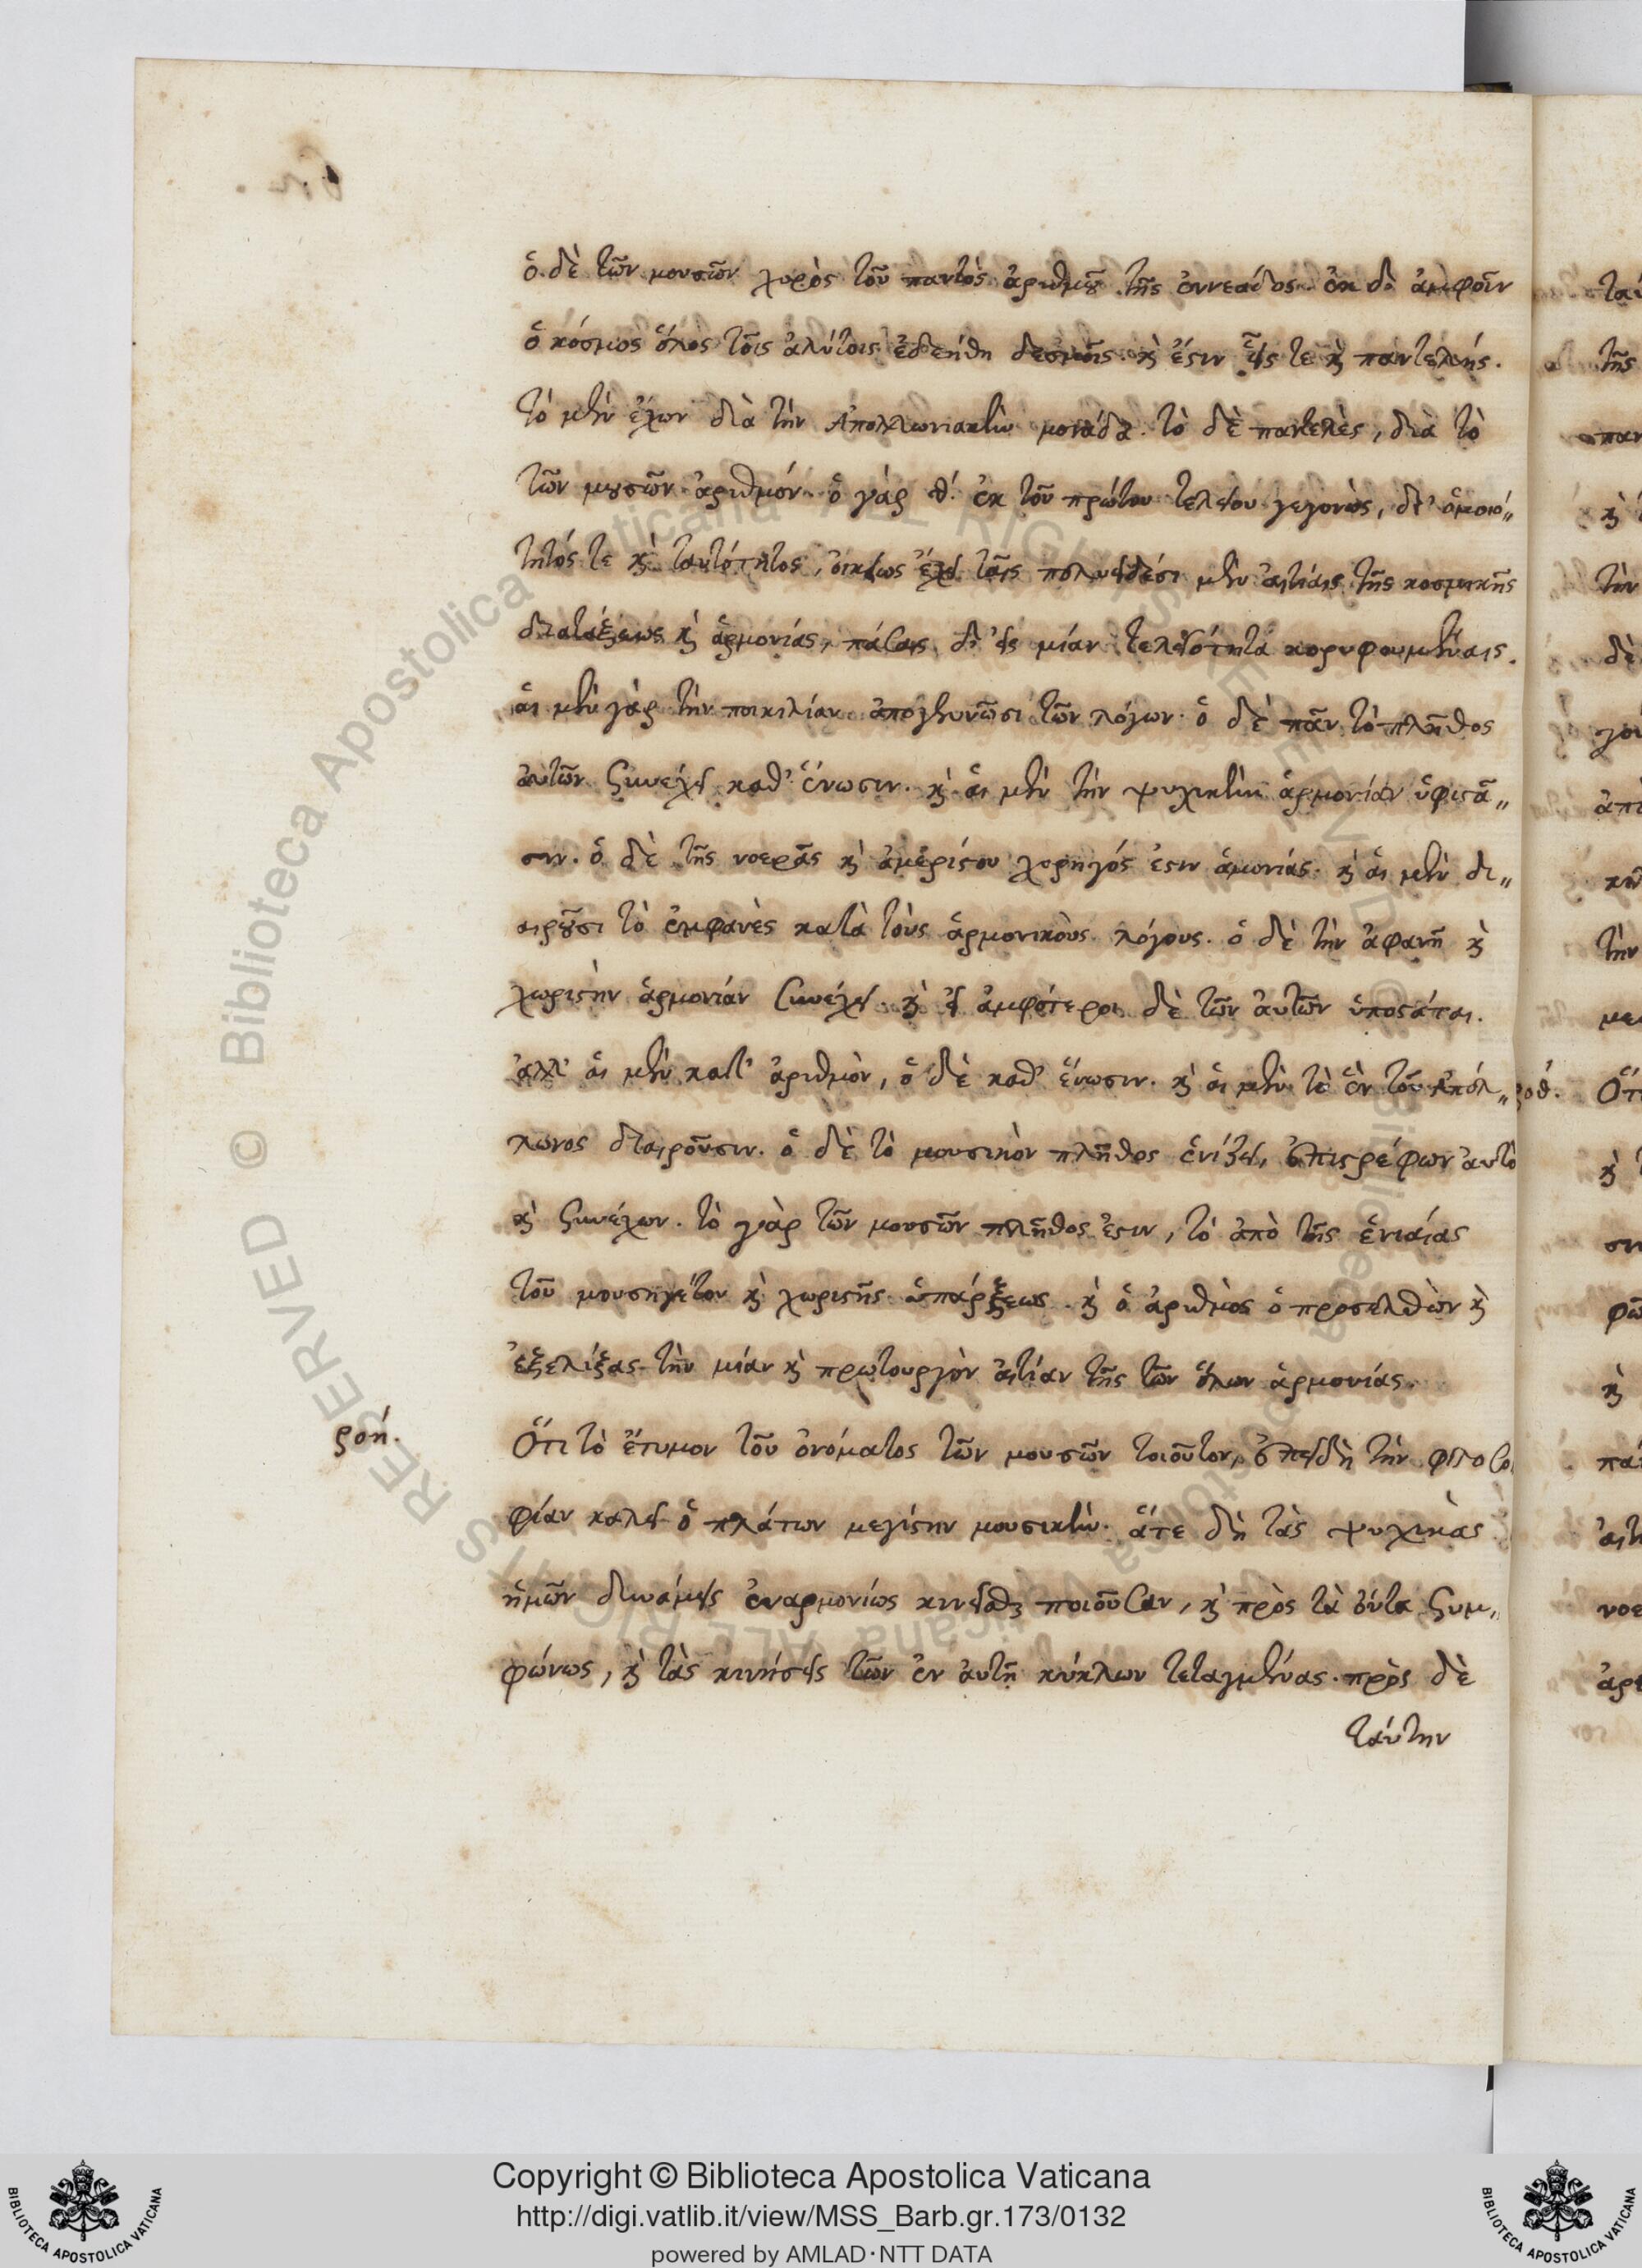 ὁ δὲ τῶν μουσῶν χορὸς τοῦ παντὸς ἀριθμοῦ τῆς ἐννεάδος. ἐκ δὲ ἀμφοῖν
ὁ κόσμος ὅλος τοῖς ἀλύτοις ἐδεήθη δεσμοῖς. καὶ ἔστιν εἷς τε καὶ παντελής.
τὸ μὲν ἔχων διὰ τὴν Ἀπολλωνιακὴν μονάδα. τὸ δὲ παντελὲς, διὰ τὸ
τῶν μουσῶν ἀριθμόν. ὁ γὰρ θ΄. ἐκ τοῦ πρώτου τελείου γεγονὼς, δι' ὁμοιό„
τητός τε καὶ ταυτότητος, οἰκείως ἔχει ταῖς πολυειδέσι μὲν αἰτίαις τῆς κοσμικῆς
διατάξεως καὶ ἁρμονίας, πάσαις δ' εἰς μίαν τελειότητα κορυφουμέναις.
αἱ μὲν γὰρ τὴν ποικιλίαν ἀπογεννῶσι τῶν λόγων. ὁ δὲ πᾶν τὸ πλῆθος
αὐτῶν συνέχει καθ' ἕνωσιν. καὶ αἱ μὲν τὴν ψυχικὴν ἁρμονίαν ὑφιστᾶ„
σιν. ὁ δὲ τῆς νοερᾶς καὶ ἀμερίστου χορηγός ἐστιν ἁμονίας. καὶ αἱ μὲν δι„
αιροῦσι τὸ ἐμφανὲς κατὰ τοὺς ἁρμονικοὺς λόγους. ὁ δὲ τὴν ἀφανῆ καὶ
χωριστὴν ἁρμονίαν συνέχει. καὶ εἰ ἀμφότεροι δὲ τῶν αὐτῶν ὑποστάται.
ἀλλ' αἱ μὲν κατ' ἀριθμὸν, ὁ δὲ καθ' ἕνωσιν. καὶ αἱ μὲν τὸ ἓν τοῦ Ἀπόλ„
λωνος διαιροῦσιν. ὁ δὲ τὸ μουσικὸν πλῆθος ἑνίζει, ἐπιστρέφων αὐτὸ
καὶ συνέχων. τὸ γὰρ τῶν μουσῶν πλῆθος ἐστιν, τὸ ἀπὸ τῆς ἑνιαίας
τοῦ μουσηγέτου καὶ χωριστῆς ὑπάρξεως. καὶ ὁ ἀριθμὸς ὁ προσελθὼν καὶ
ἐξελίξας τὴν μίαν καὶ πρωτουργὸν αἰτίαν τῆς τῶν ὅλων ἁρμονίας.
ροή.
Ὅτι τὸ ἔτυμον τοῦ ὀνόματος τῶν μουσῶν τοιοῦτον, ἐπειδὴ τὴν φιλοσο
φίαν καλεῖ ὁ πλάτων μεγίστην μουσικὴν. ἅτε δὴ τὰς ψυχικὰς
ἡμῶν δυνάμεις ἐναρμονίως κινεῖσθαι ποιοῦσαν, καὶ πρὸς τὰ ὄντα συμ„
φώνως, καὶ τὰς κινήσεις τῶν ἐν αὐτῇ κύκλων τεταγμένας. πρὸς δὲ
ταύτην
Copyright © Biblioteca Apostolica Vaticana
http://digi.vatlib.it/view/MSS_Barb.gr.173/0132
powered by AMLAD·NTT DATA